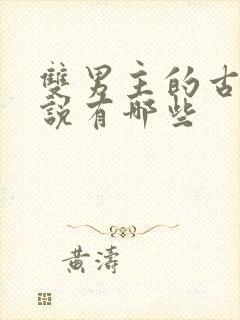 雙男主的古
說有哪些
黃濤